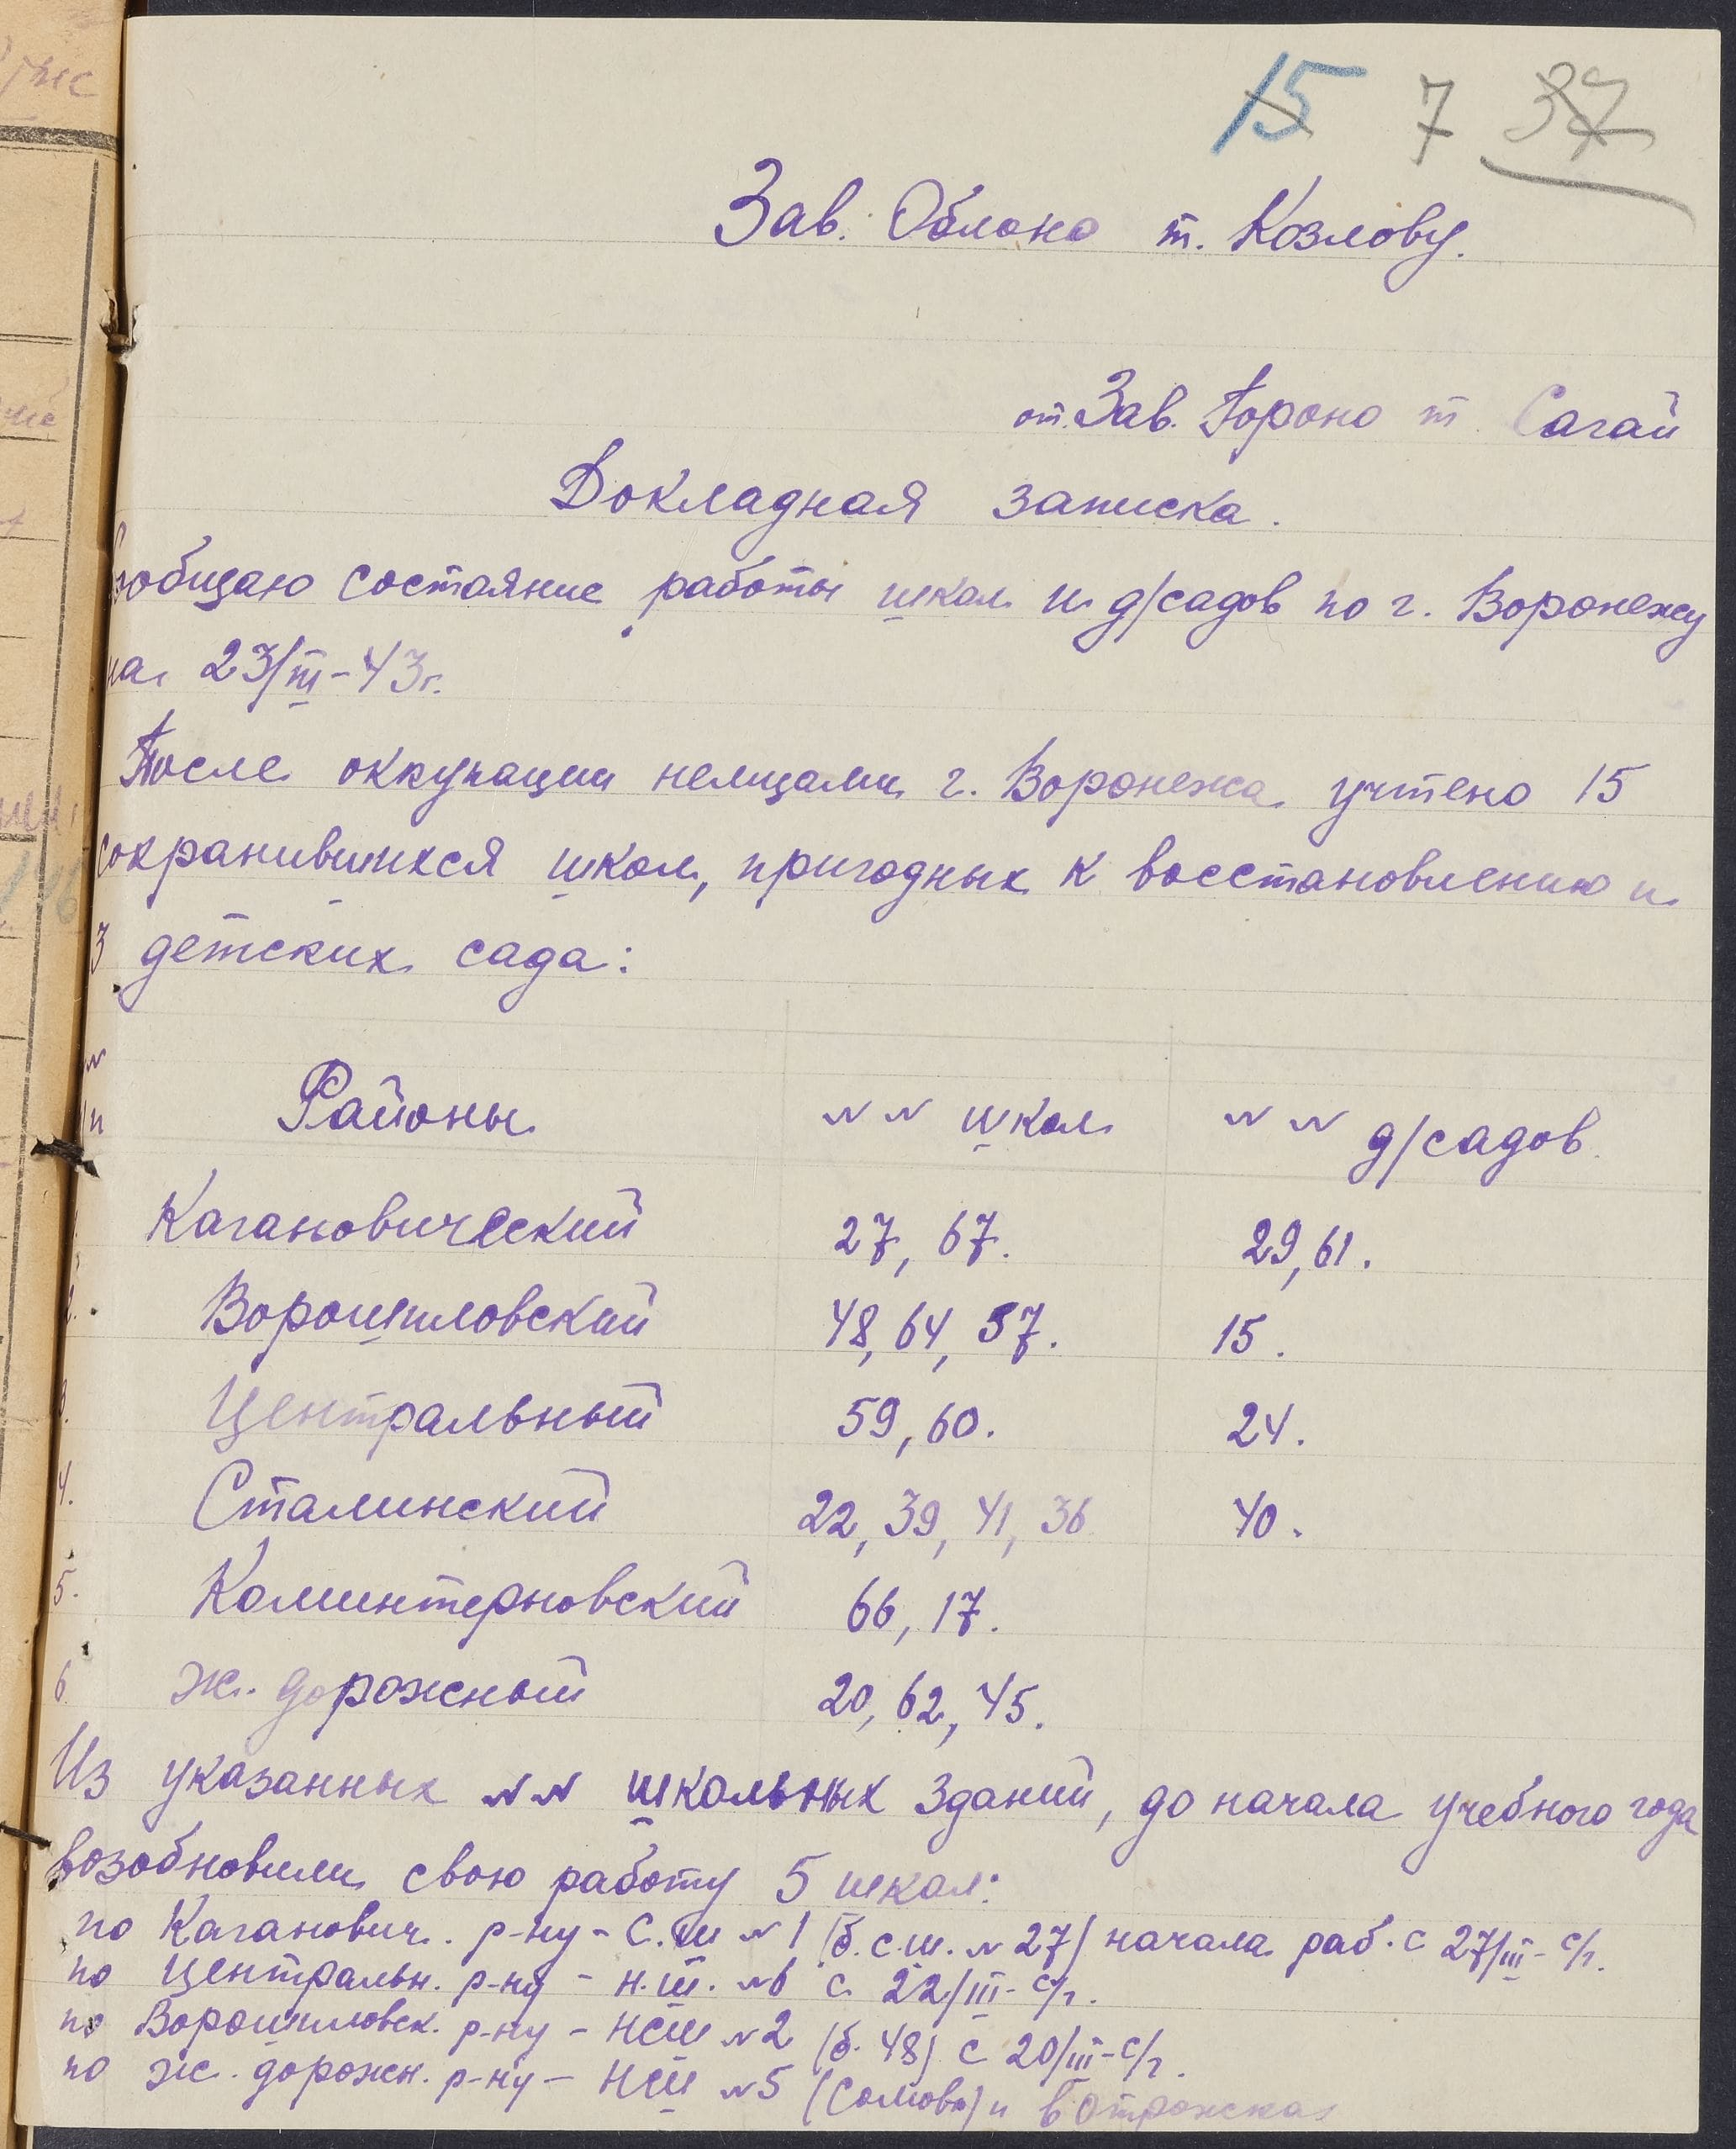 15 7 37
Зав. Облоно т. Козлову.
от Зав. Гороно т Сагай
Докладная записка.
Сообщаю состояние работы школ и д/садов по г. Воронежу
на 23/III-43г.
После оккупации немцами г. Воронежа учтено 15
сохранившихся школ, пригодных к восстановлению и
3 детских сада:
№ п/п Районы №№ школ №№ д/садов
Кагановический 27, 67. 29, 61.
2. Ворошиловский 48, 64, 57. 15.
3. Центральный 59, 60. 24.
4. Сталинский 22, 39, 41, 36 40.
5. Коминтерновский 66, 17.
6 Ж. дорожный 20, 62, 45.
Из указанных №№ школьных зданий, до начала учебного года
возобновили свою работу 5 школ:
по Каганович. р-ну - С.Ш № 1 (б. с.ш. № 27) начала раб. с 27/III- с/г.
по Центральн. р-ну - н.ш. №6 с 22/III- с/г.
по Ворошиловск. р-ну - НСШ №2 (б. 48) с 20/III- с/г.
по ж. дорожн. р-ну - НСШ №5 (Сомово) и в Отрожках